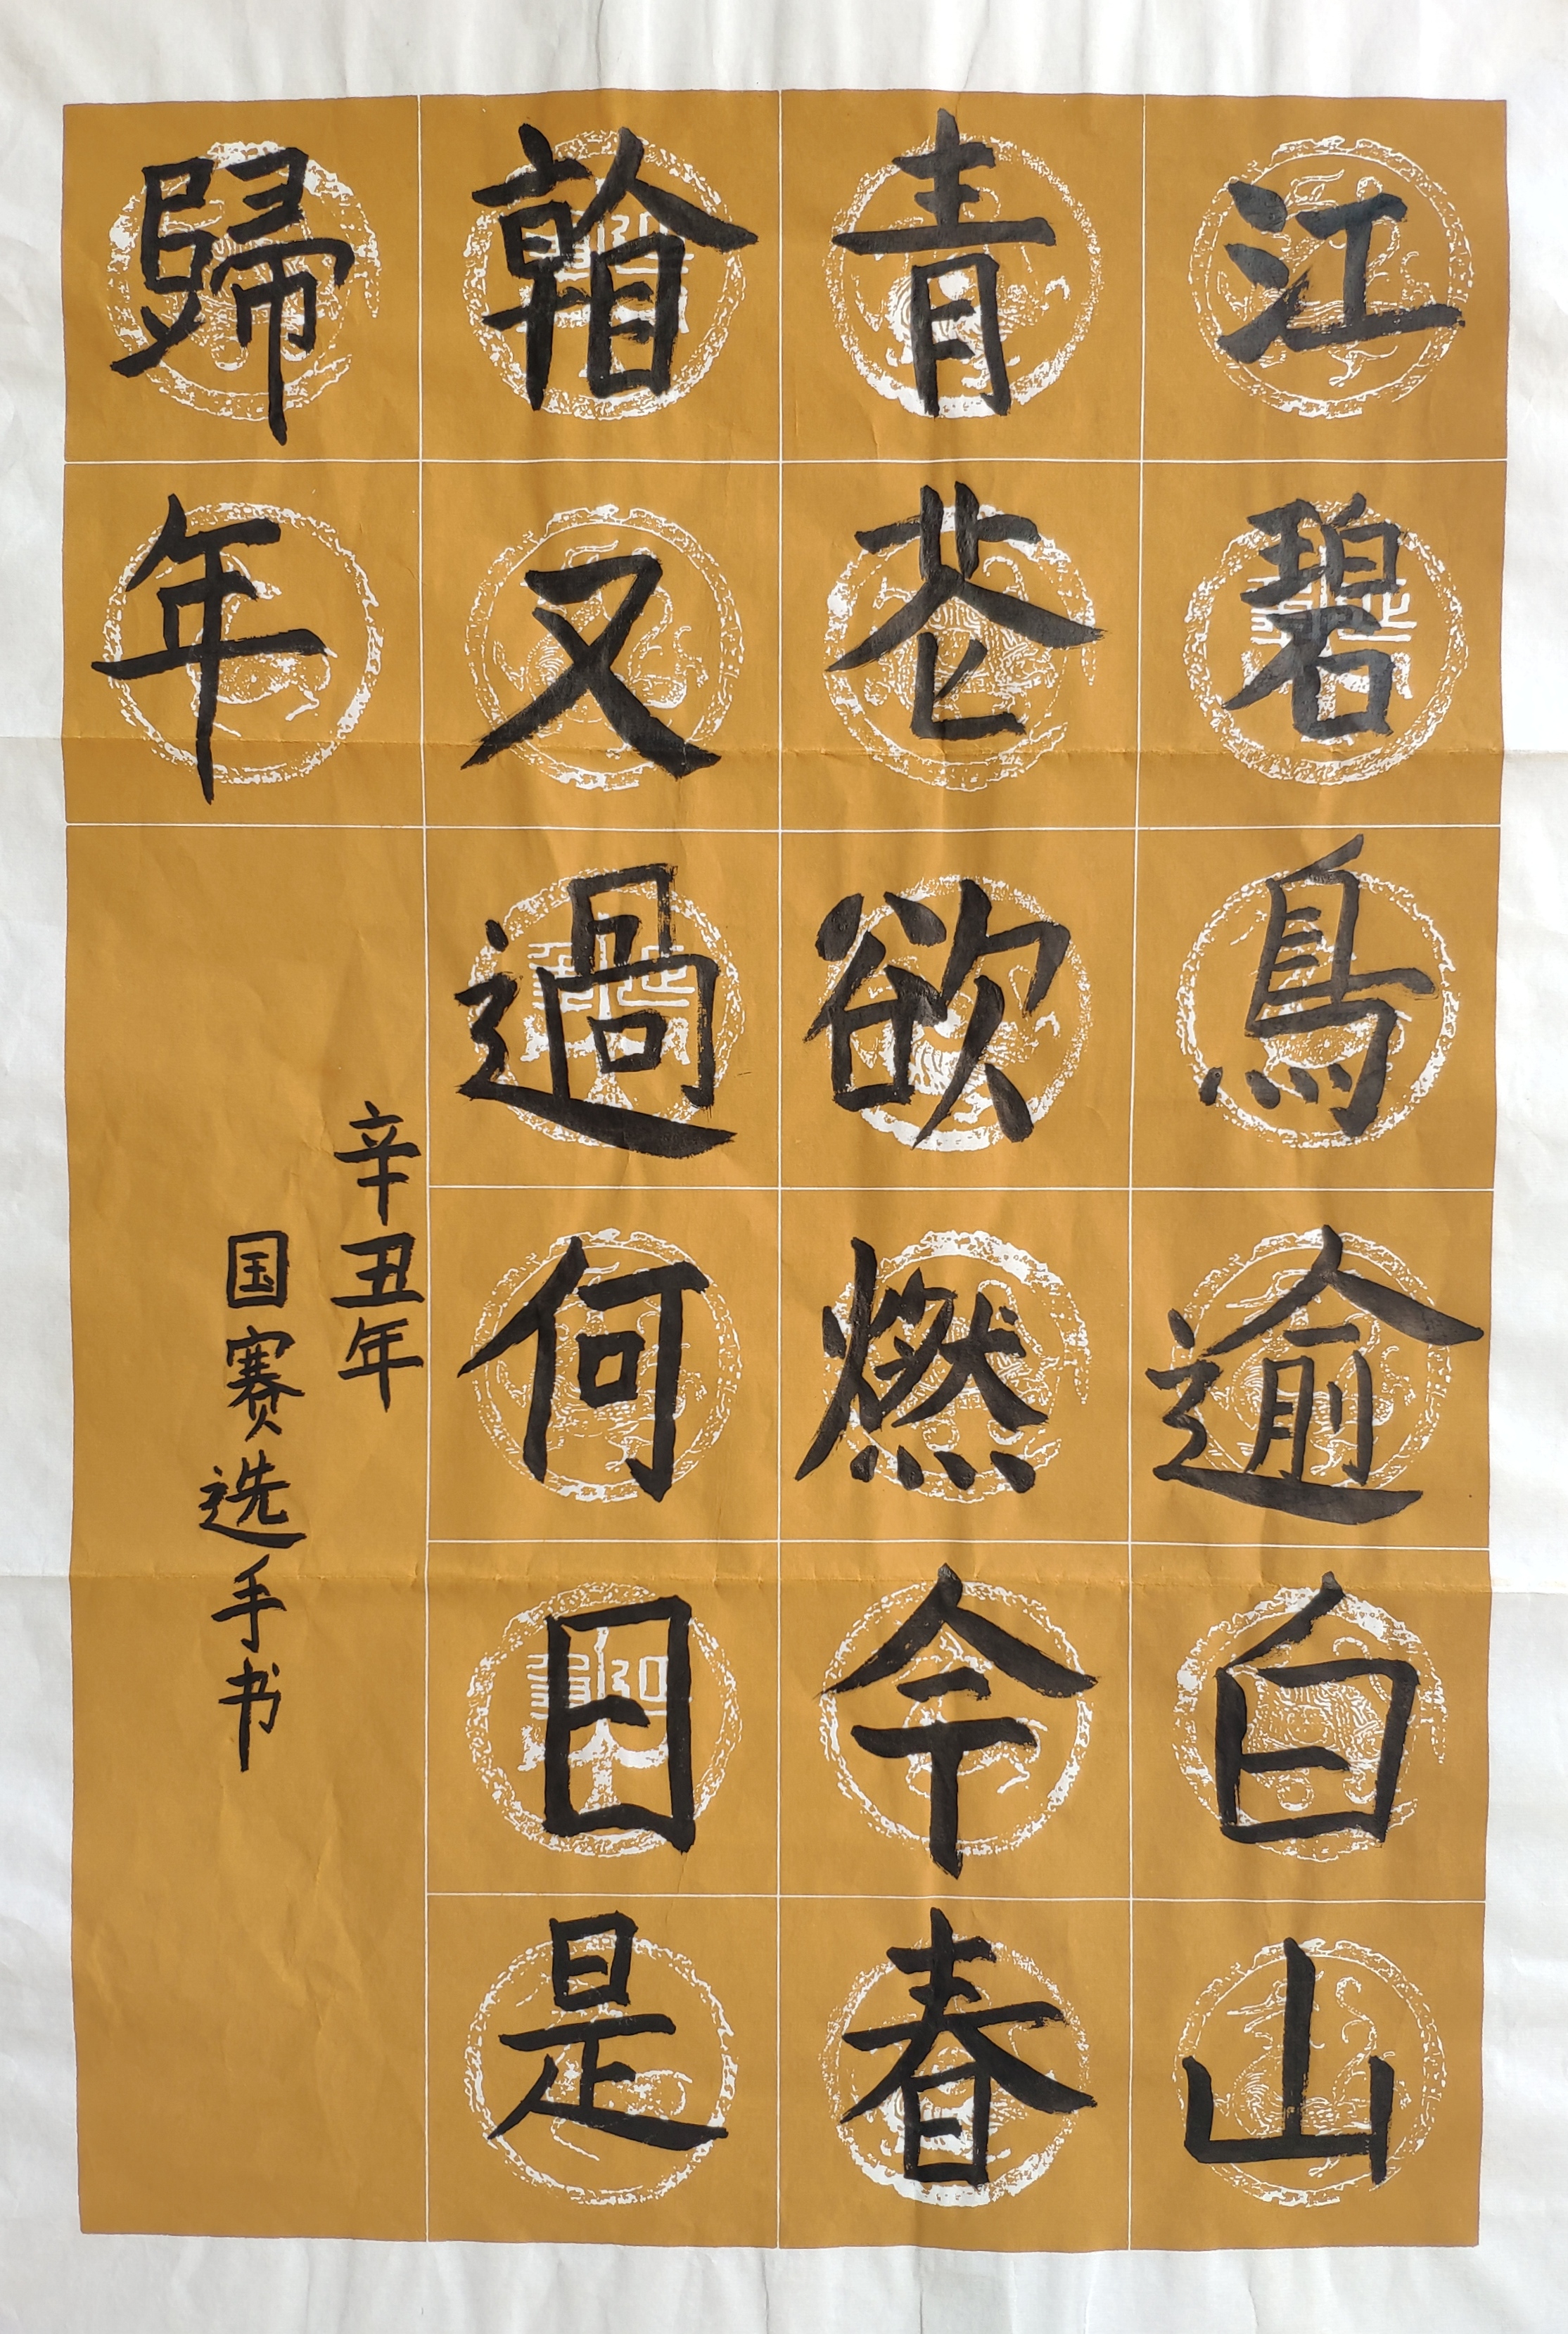 江碧鳥逾白山
青苍欲燃今春
䀍又過何日是
歸年
辛丑年
国赛选手书